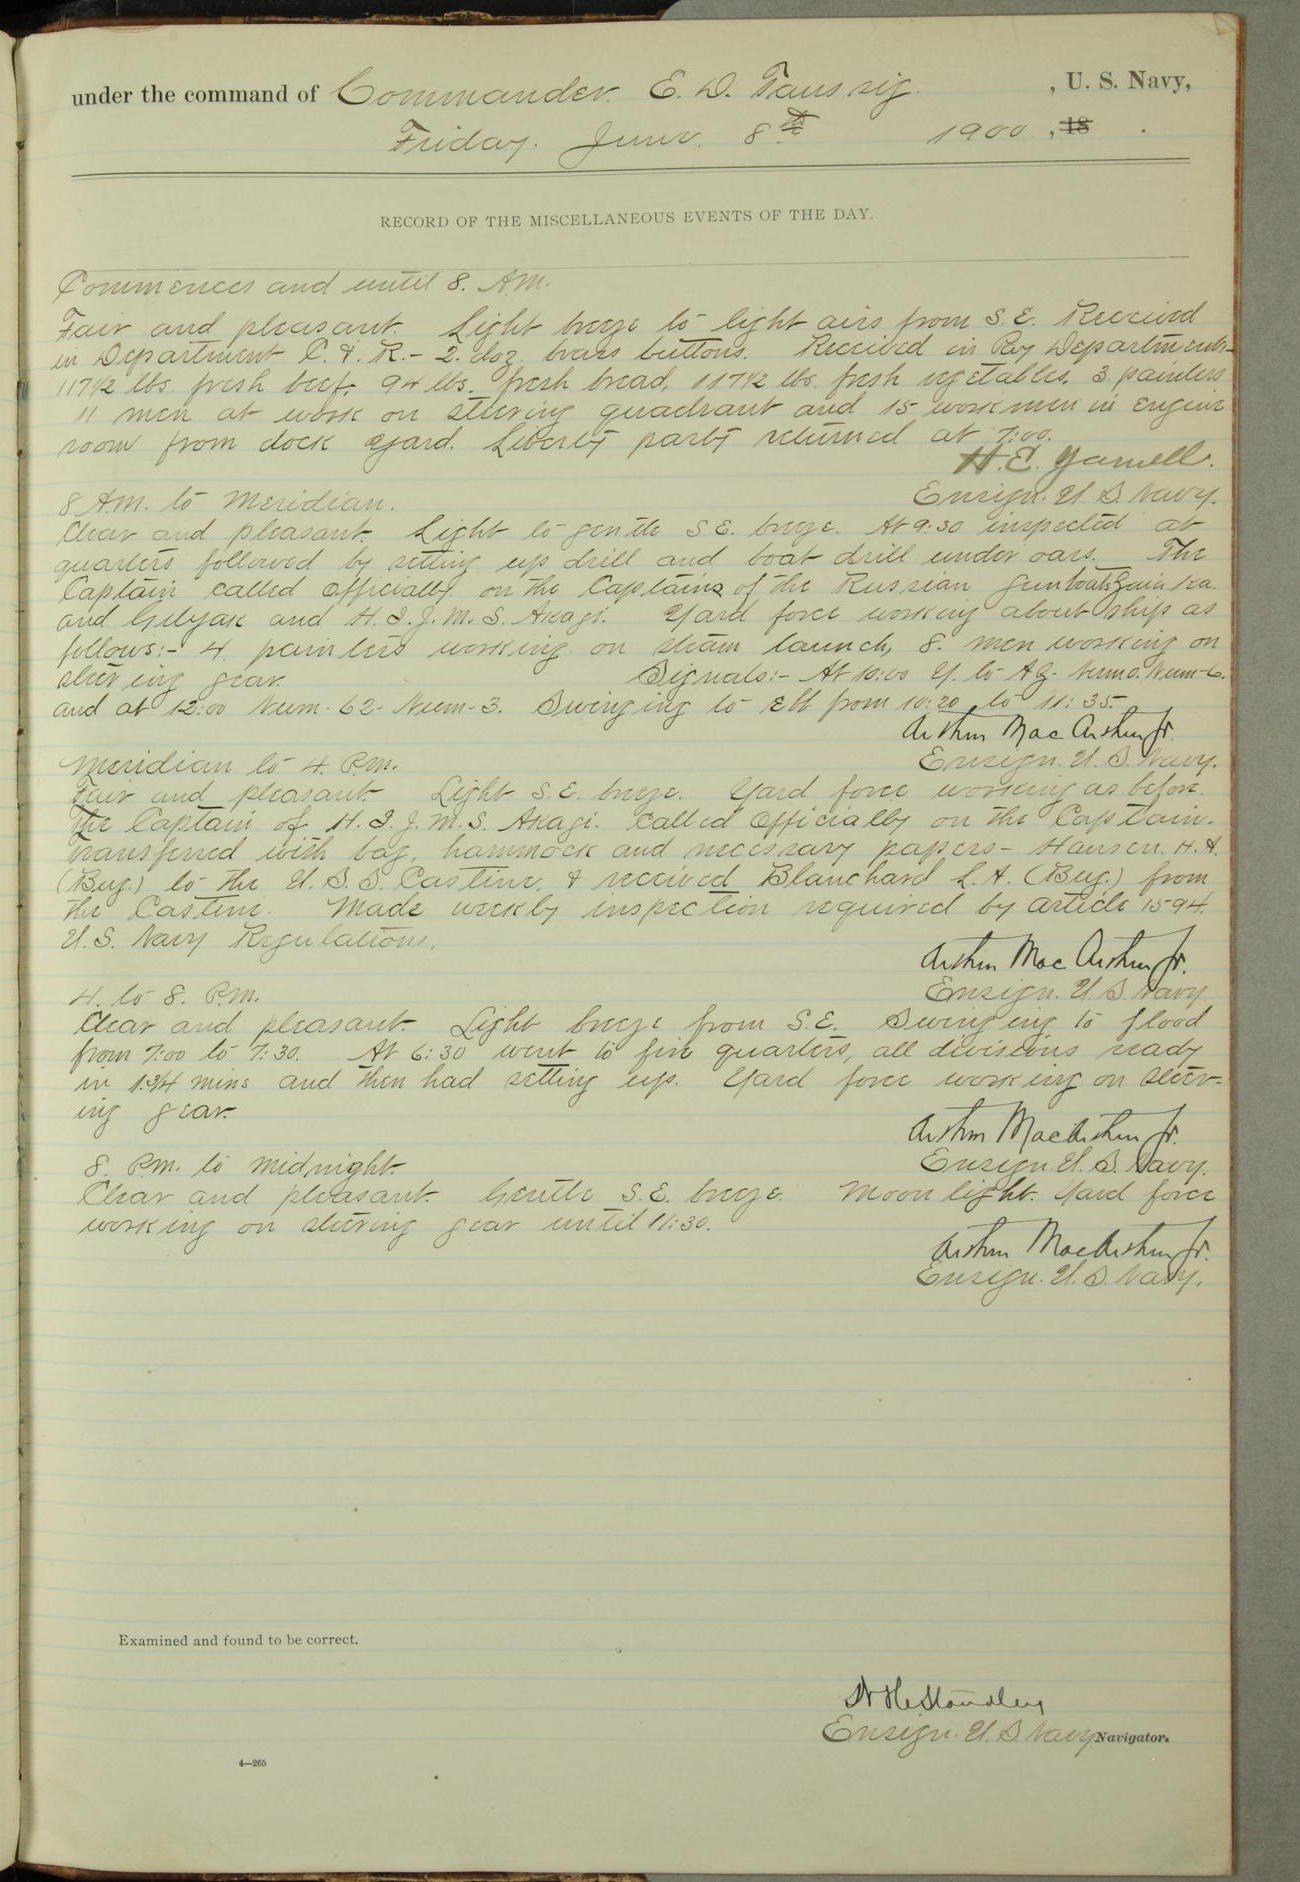 under the command of Commander. E. D. Taussig. , U. S. Navy,
Friday. June. 8th 1900 , 18 .
RECORD OF THE MISCELLANEOUS EVENTS OF THE DAY.
Commences and until 8. A.M.
Fair and pleasant. Light breeze to light airs from S.E. Received
in Department C. & R. - 2. doz. brass buttons. Received in Pay Department:-
117½ lbs. fresh beef, 94 lbs. fresh bread, 117½ lbs. fresh vegetables. 3 painters
11 men at work on steering quadrant and 15 workmen in engine
room from dock yard. Liberty party returned at 7:00.
H. E. Yarnell.
Ensign. U. S. Navy.
8 A.M. to Meridian.
Clear and pleasant. Light to gentle S.E. breeze. At 9:30 inspected at
quarters followed by setting up drill and boat drill under oars. The
Captain called officially on the Captains of the Russian gunboats
and Gilyak and H. I. J. M. S. Akagi. Yard force working about ship as
follows:- 4 painters working on steam launch, 8. men working on
steering gear. Signals:- At 10:00 Y. to Num-6.
and at 12:00 Num-62- Num-3. Swinging to ebb from 10:20 to 11:35.
Arthur MacArthur Jr.
Ensign. U. S. Navy.
Meridian to 4. P.M.
Fair and pleasant. Light S.E. breeze. Yard force working as before.
The Captain of H. I. J. M. S. Akagi. called officially on the Captain.
Transferred with bag, hammock and necessary papers - Hansen. H. A.
(Bug.) to the U. S. S. Castine, & received Blanchard L. A. (Bug.) from
the Castine. Made weekly inspection required by article 1594.
U. S. Navy Regulations.
Arthur MacArthur Jr.
Ensign. U S Navy
4. to 8. P.M.
Clear and pleasant. Light breeze from S.E. Swinging to flood
from 7:00 to 7:30. At 6:30 went to fire quarters, all divisions ready
in 1 3/4 mins and then had setting up. Yard force working on steer-
ing gear.
Arthur MacArthur Jr.
Ensign. U. S. Navy.
8. P.M. to midnight.
Clear and pleasant. Gentle S.E. breeze. Moonlight. Yard force
working on steering gear until 11:30.
Arthur MacArthur Jr.
Ensign. U. S. Navy.
Examined and found to be correct.
W H Standley
Ensign. U. S. Navy Navigator.
4—265